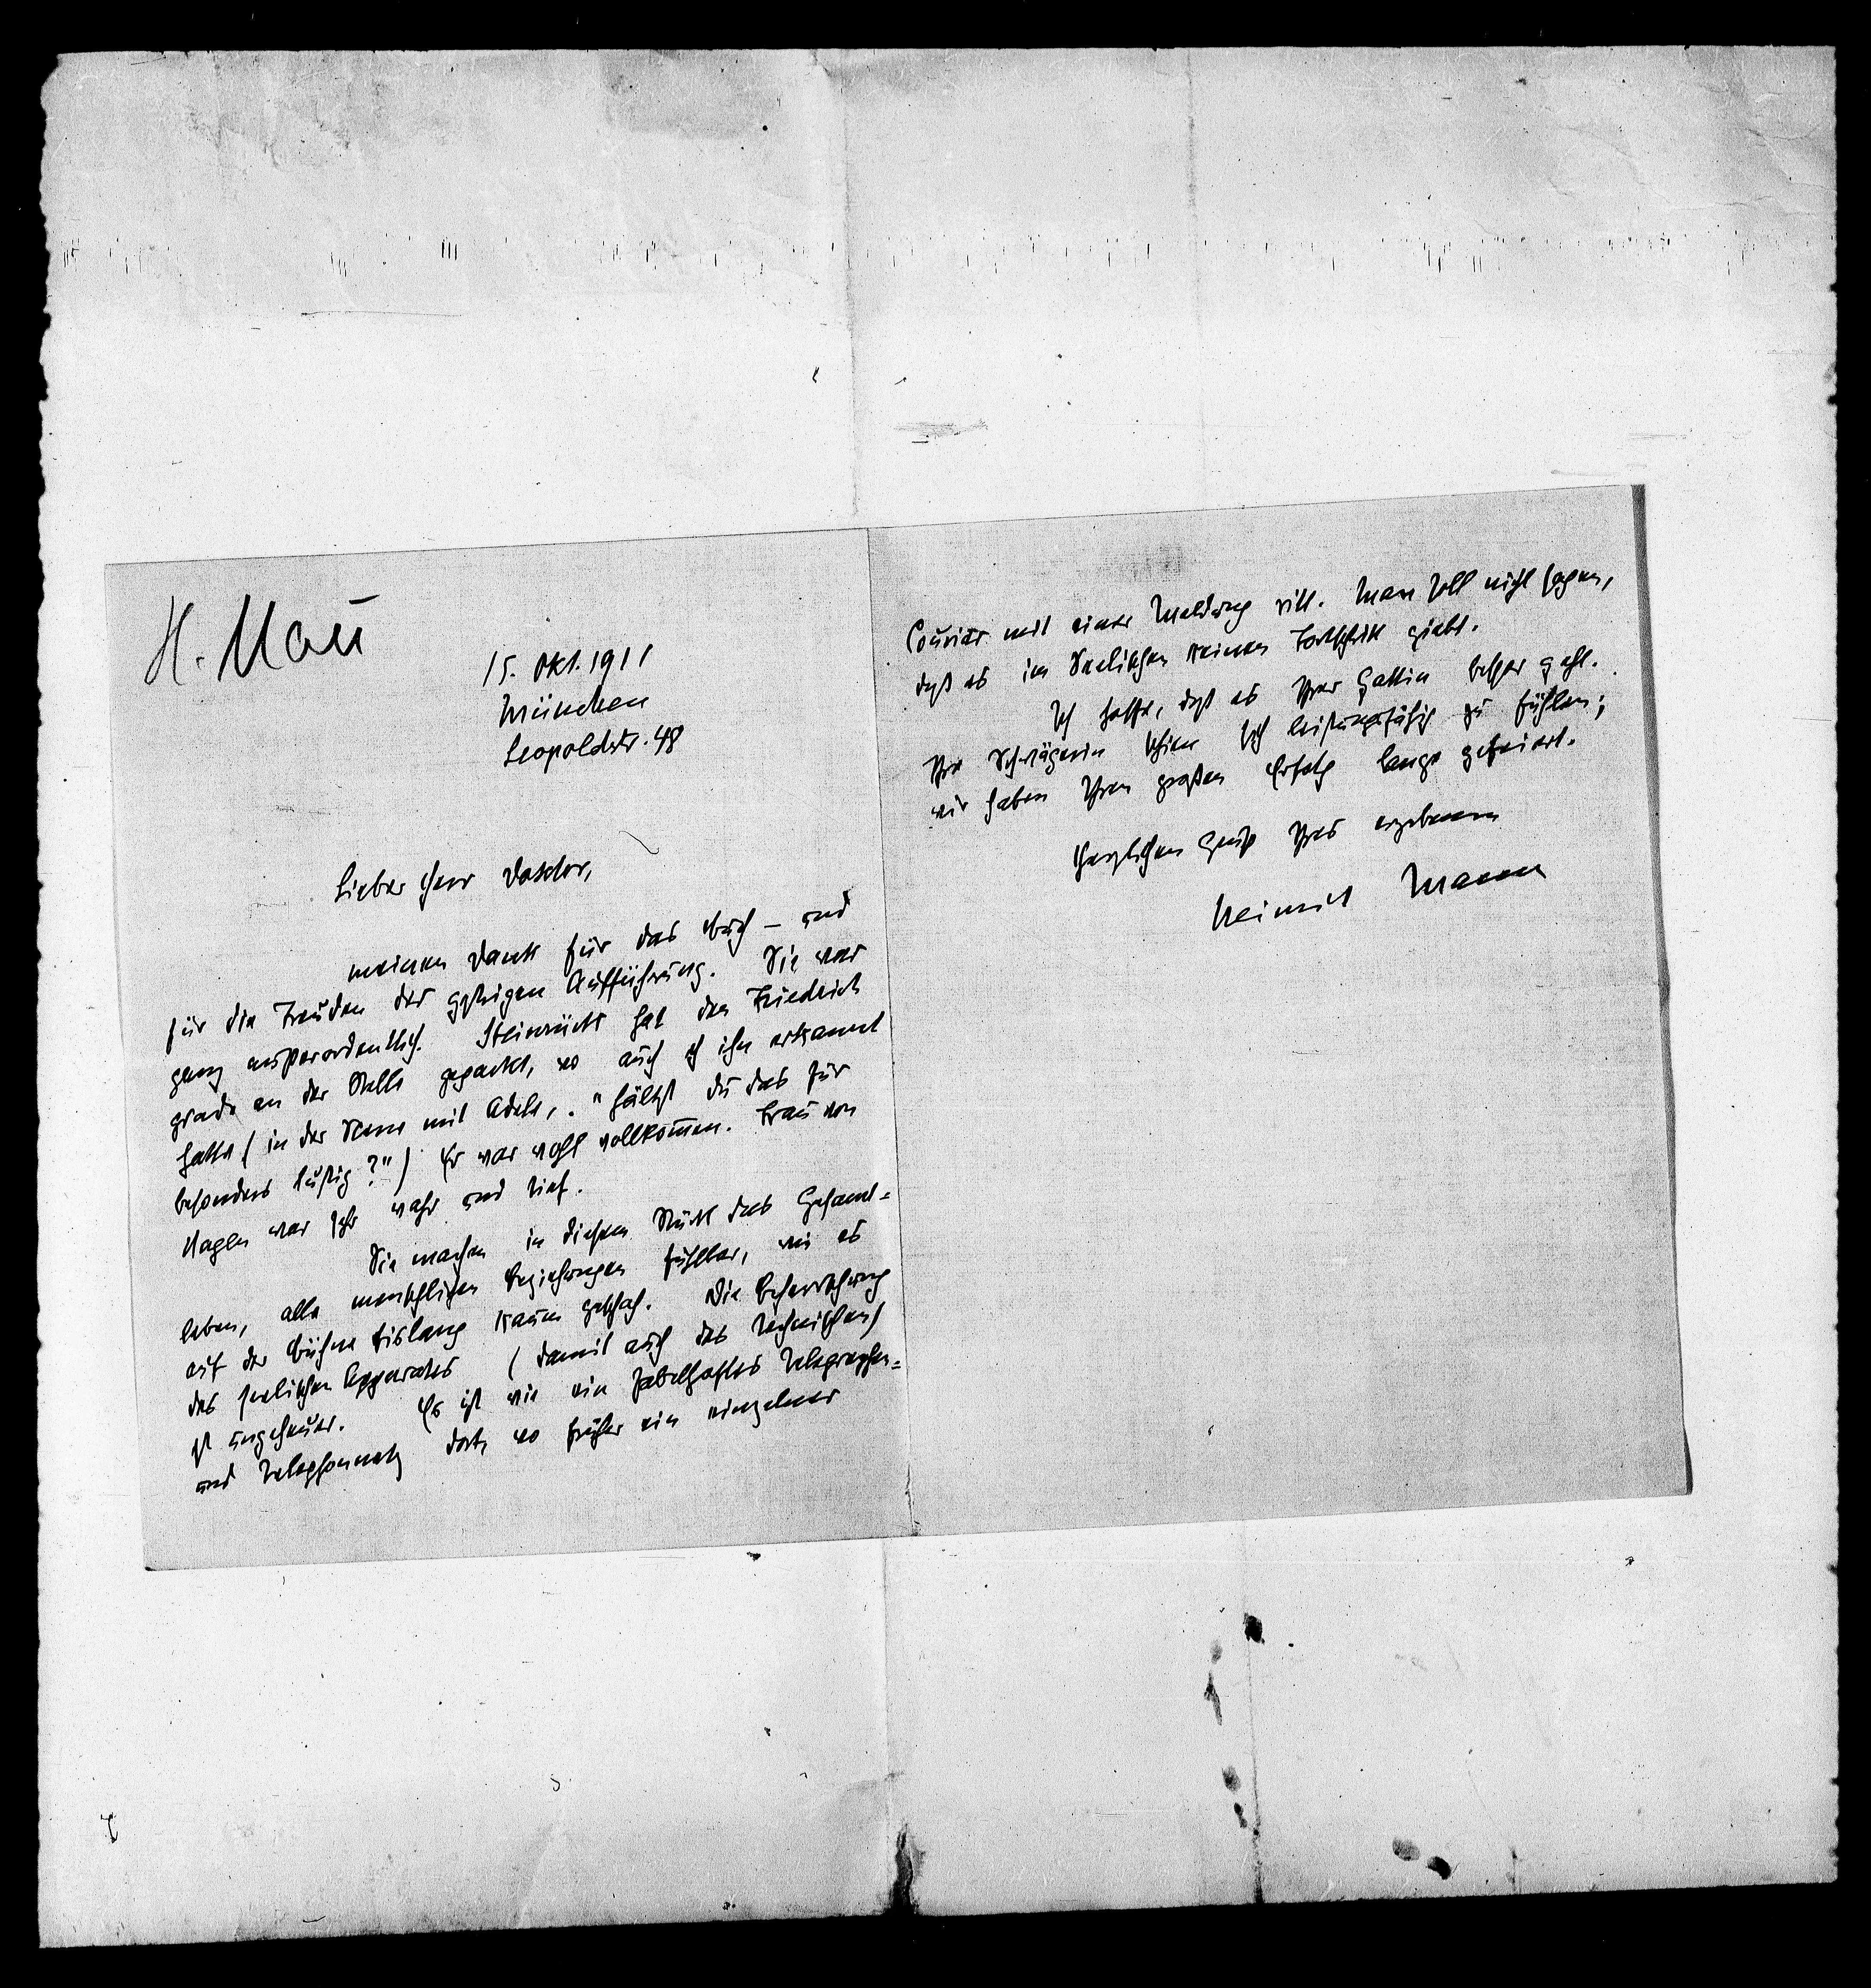 H. Mañ
15. Okt. 1911
München
Leopoldstr. 48
Lieber Herr Doktor,
meinen Dank für das Buch – und
für die Freuden der gestrigen Aufführung. Sie war
ganz außerordentlich. Steinrück hat den Friedrich
grade an der Stelle gepackt, wo auch ich ihn erkannt
hatte (in der Scene mit Adele, "hältst du das für
besonders lustig?") Er war wohl vollkommen. Frau von
Hagen war sehr wahr und tief.
Sie machen in diesem Stück das Gesamt=
leben, alle menschlichen Beziehungen fühlbar, wie es
auf der Bühne bislang kaum geschah. Die Beherrschung
des seelischen Apparates (damit auch des technischen)
ist ungeheuer. Es ist wie ein fabelhaftes Telegraphen=
und Telephonnetz dort, wo früher ein einzelner
Courier mit einer Meldung ritt. Man soll nicht sagen,
daß es im Seelischen keinen Fortschritt giebt.
Ich hoffe, daß es Ihrer Gattin besser geht.
Ihre Schwägerin schien sich leistungsfähig zu fühlen;
wir haben Ihren großen Erfolg lange gefeiert.
Herzlichen Gruß Ihres ergebenen
Heinrich Mann